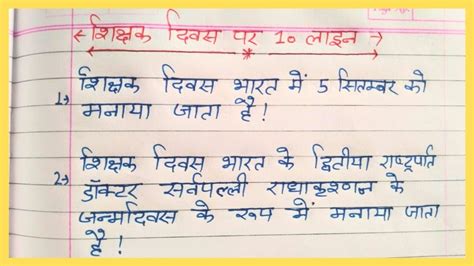 शिक्षक दिवस पर 10 लाइन
1→ शिक्षक दिवस भारत में 5 सितम्बर को
मनाया जाता है!
2→ शिक्षक दिवस भारत के द्वितीया राष्ट्रपति
डॉक्टर सर्वपल्ली राधाकृश्णन के
जन्मदिवस के रूप में मनाया जाता
है!